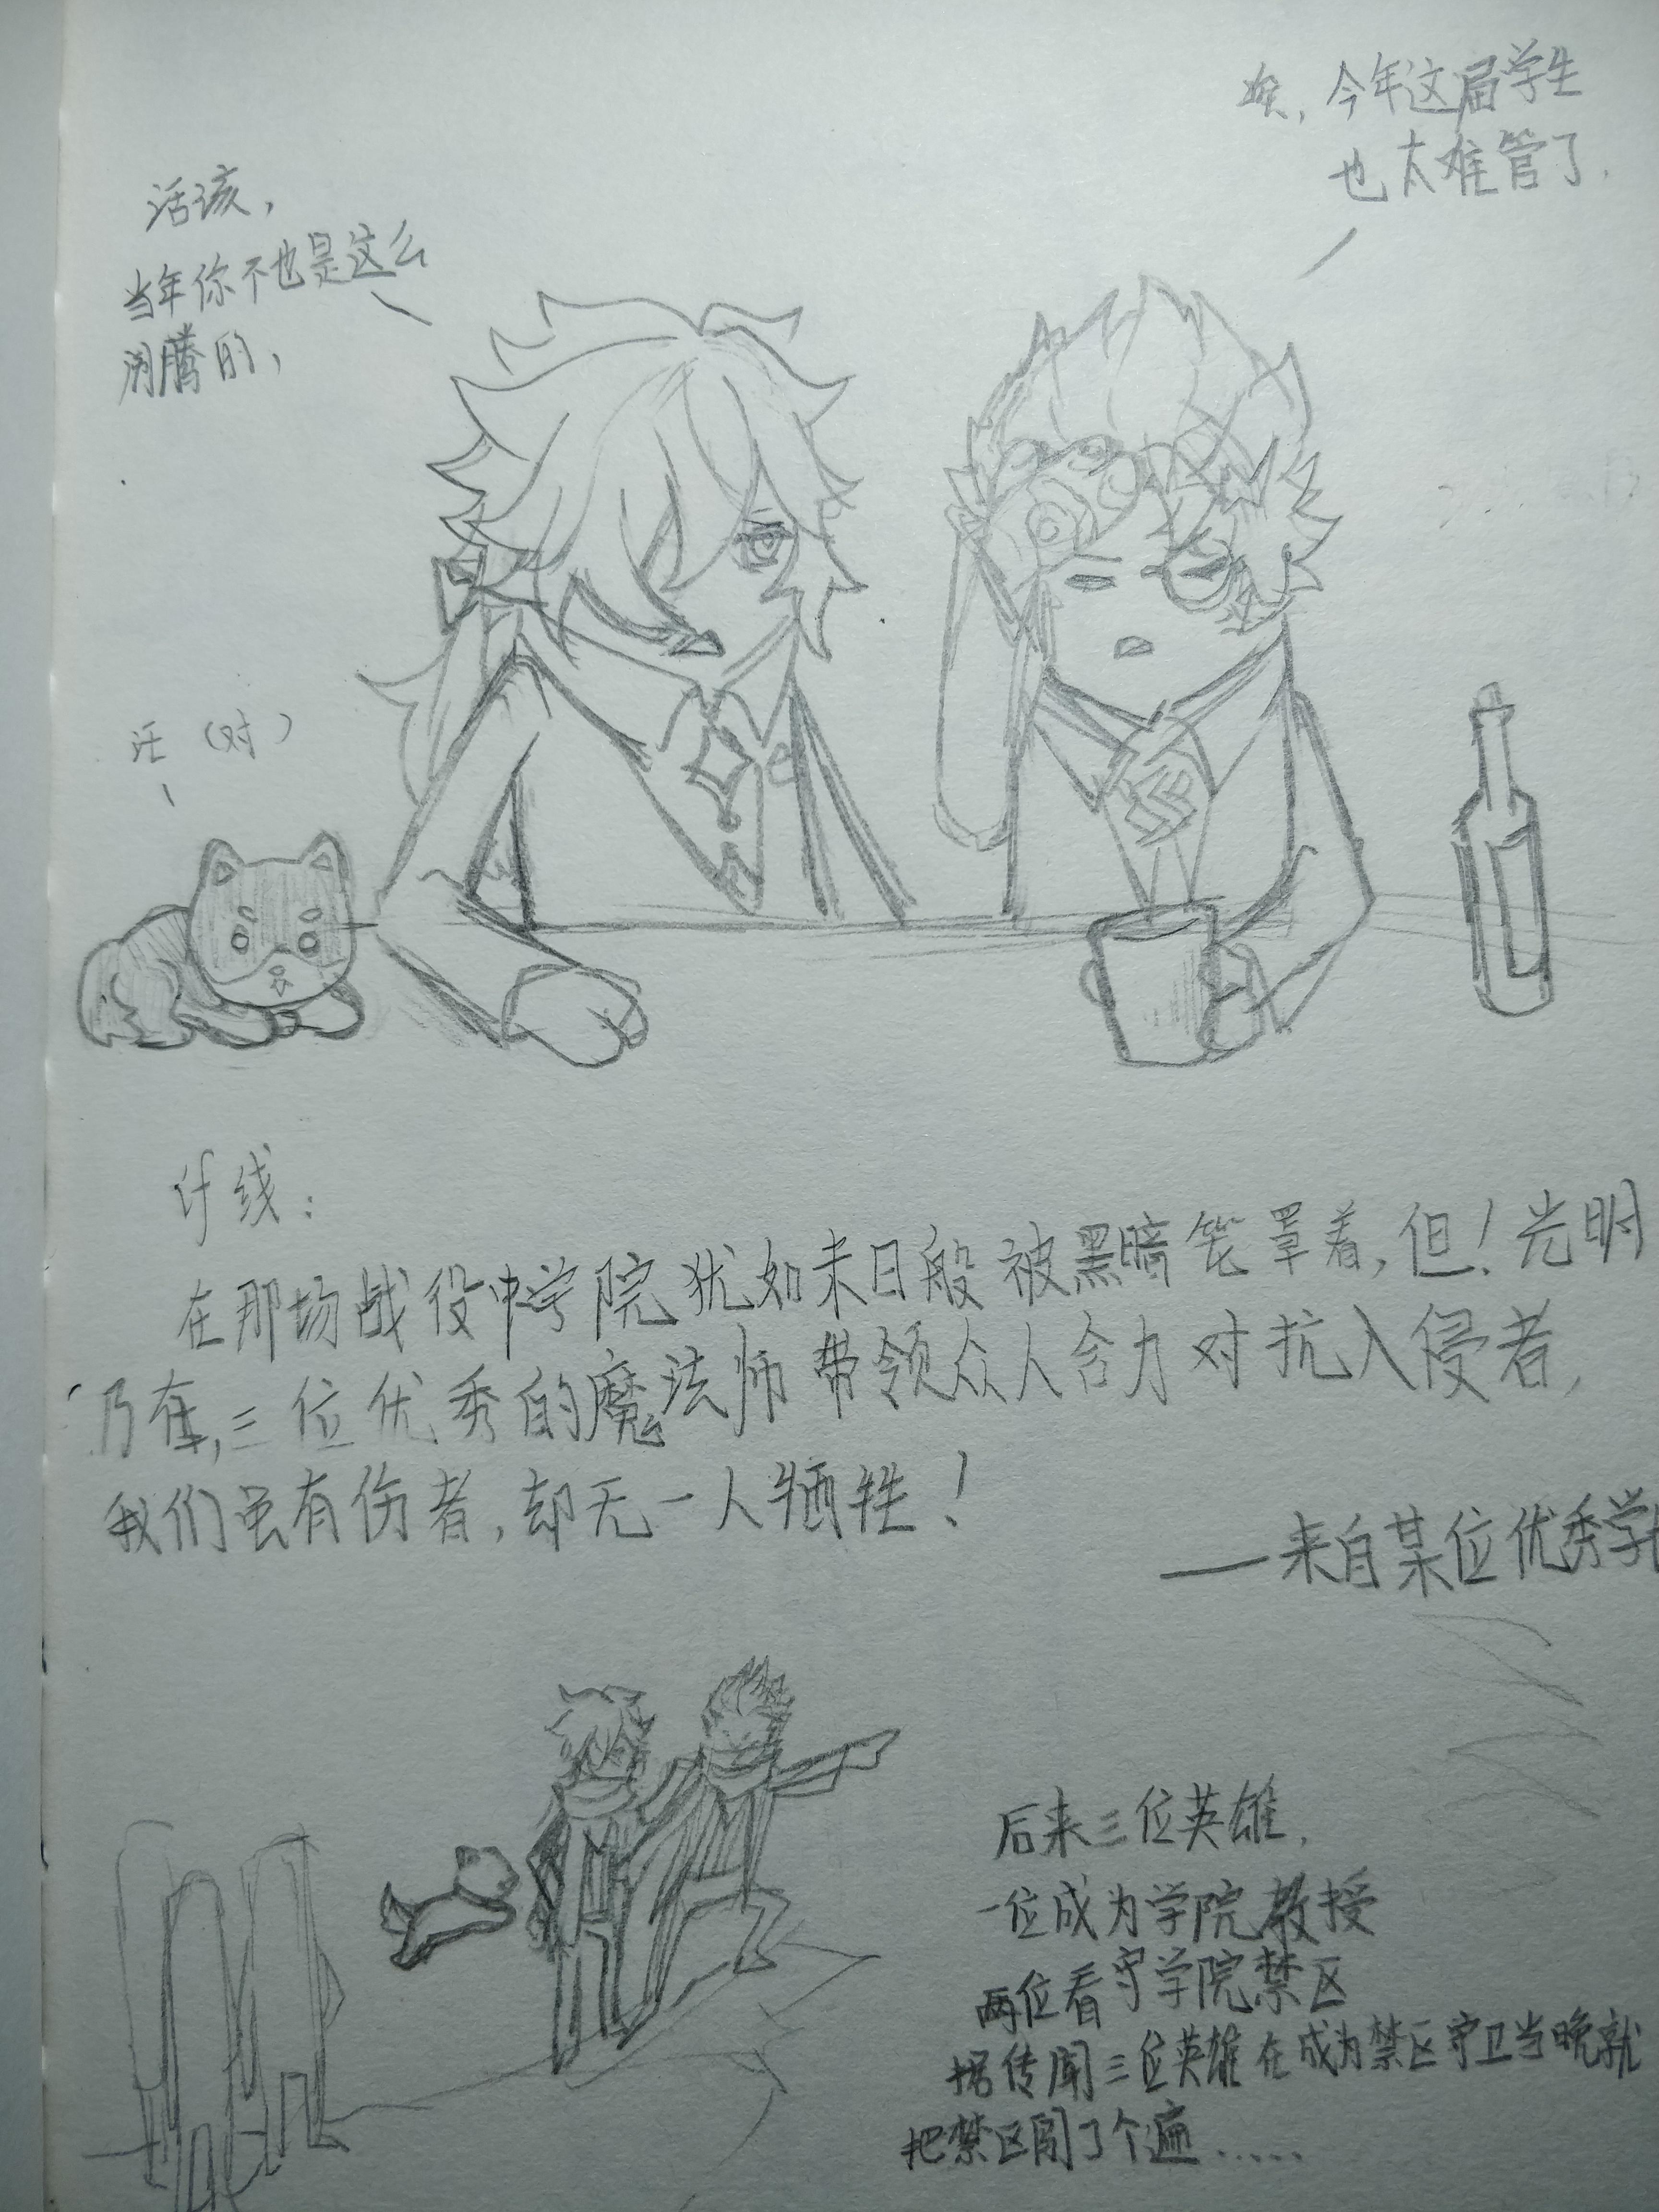 唉，今年这届学生
也太难管了．
活该，
当年你不也是这么
闹腾的，
汪（对）
时线：
在那场战役中学院犹如末日般被黑暗笼罩着，但！光明
乃在，三位优秀的魔法师带领众人合力对抗入侵者，
我们虽有伤者，却无一人牺牲！
——来自某位优秀学
后来三位英雄，
一位成为学院教授
两位看守学院禁区
据传闻三位英雄在成为禁区守卫当晚就
把禁区闯了个遍……